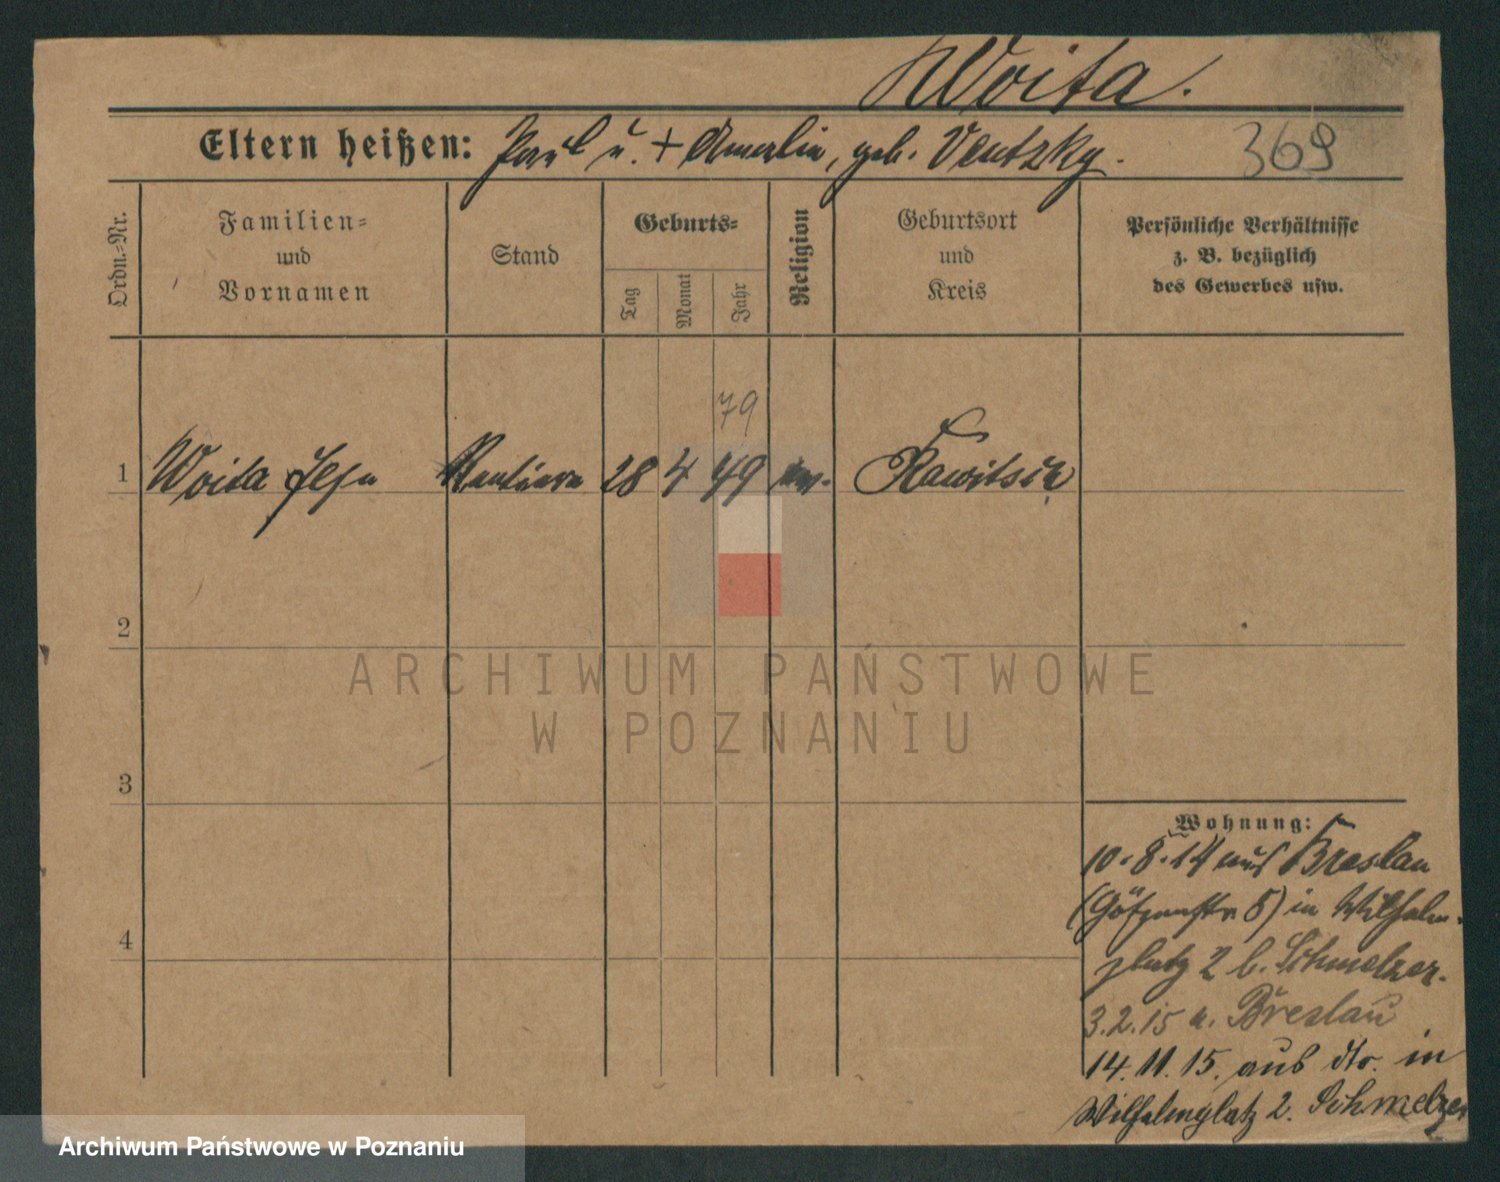 Woita.
Eltern heißen: Paul u. + Amalie, geb. Ventzky.
369
Ordn.=Nr.
Familien=
und
Vornamen
Stand
Geburts=
Tag
Monat
Jahr
Religion
Geburtsort
und
Kreis
Persönliche Verhältnisse
z. B. bezüglich
des Gewerbes usw.
79
1 Woita Rentiere 28 4 49 ev. Rawitsch
2
3
4
Wohnung:
10.8.14 aus Breslau
5) in Wilhelm-
platz 2 b. Schmelzer.
3.2.15 n. Breslau
14.11.15. aus dto. in
Wilhelmplatz 2. Schmelzer
ARCHIWUM PAŃSTWOWE
W POZNANIU
Archiwum Państwowe w Poznaniu